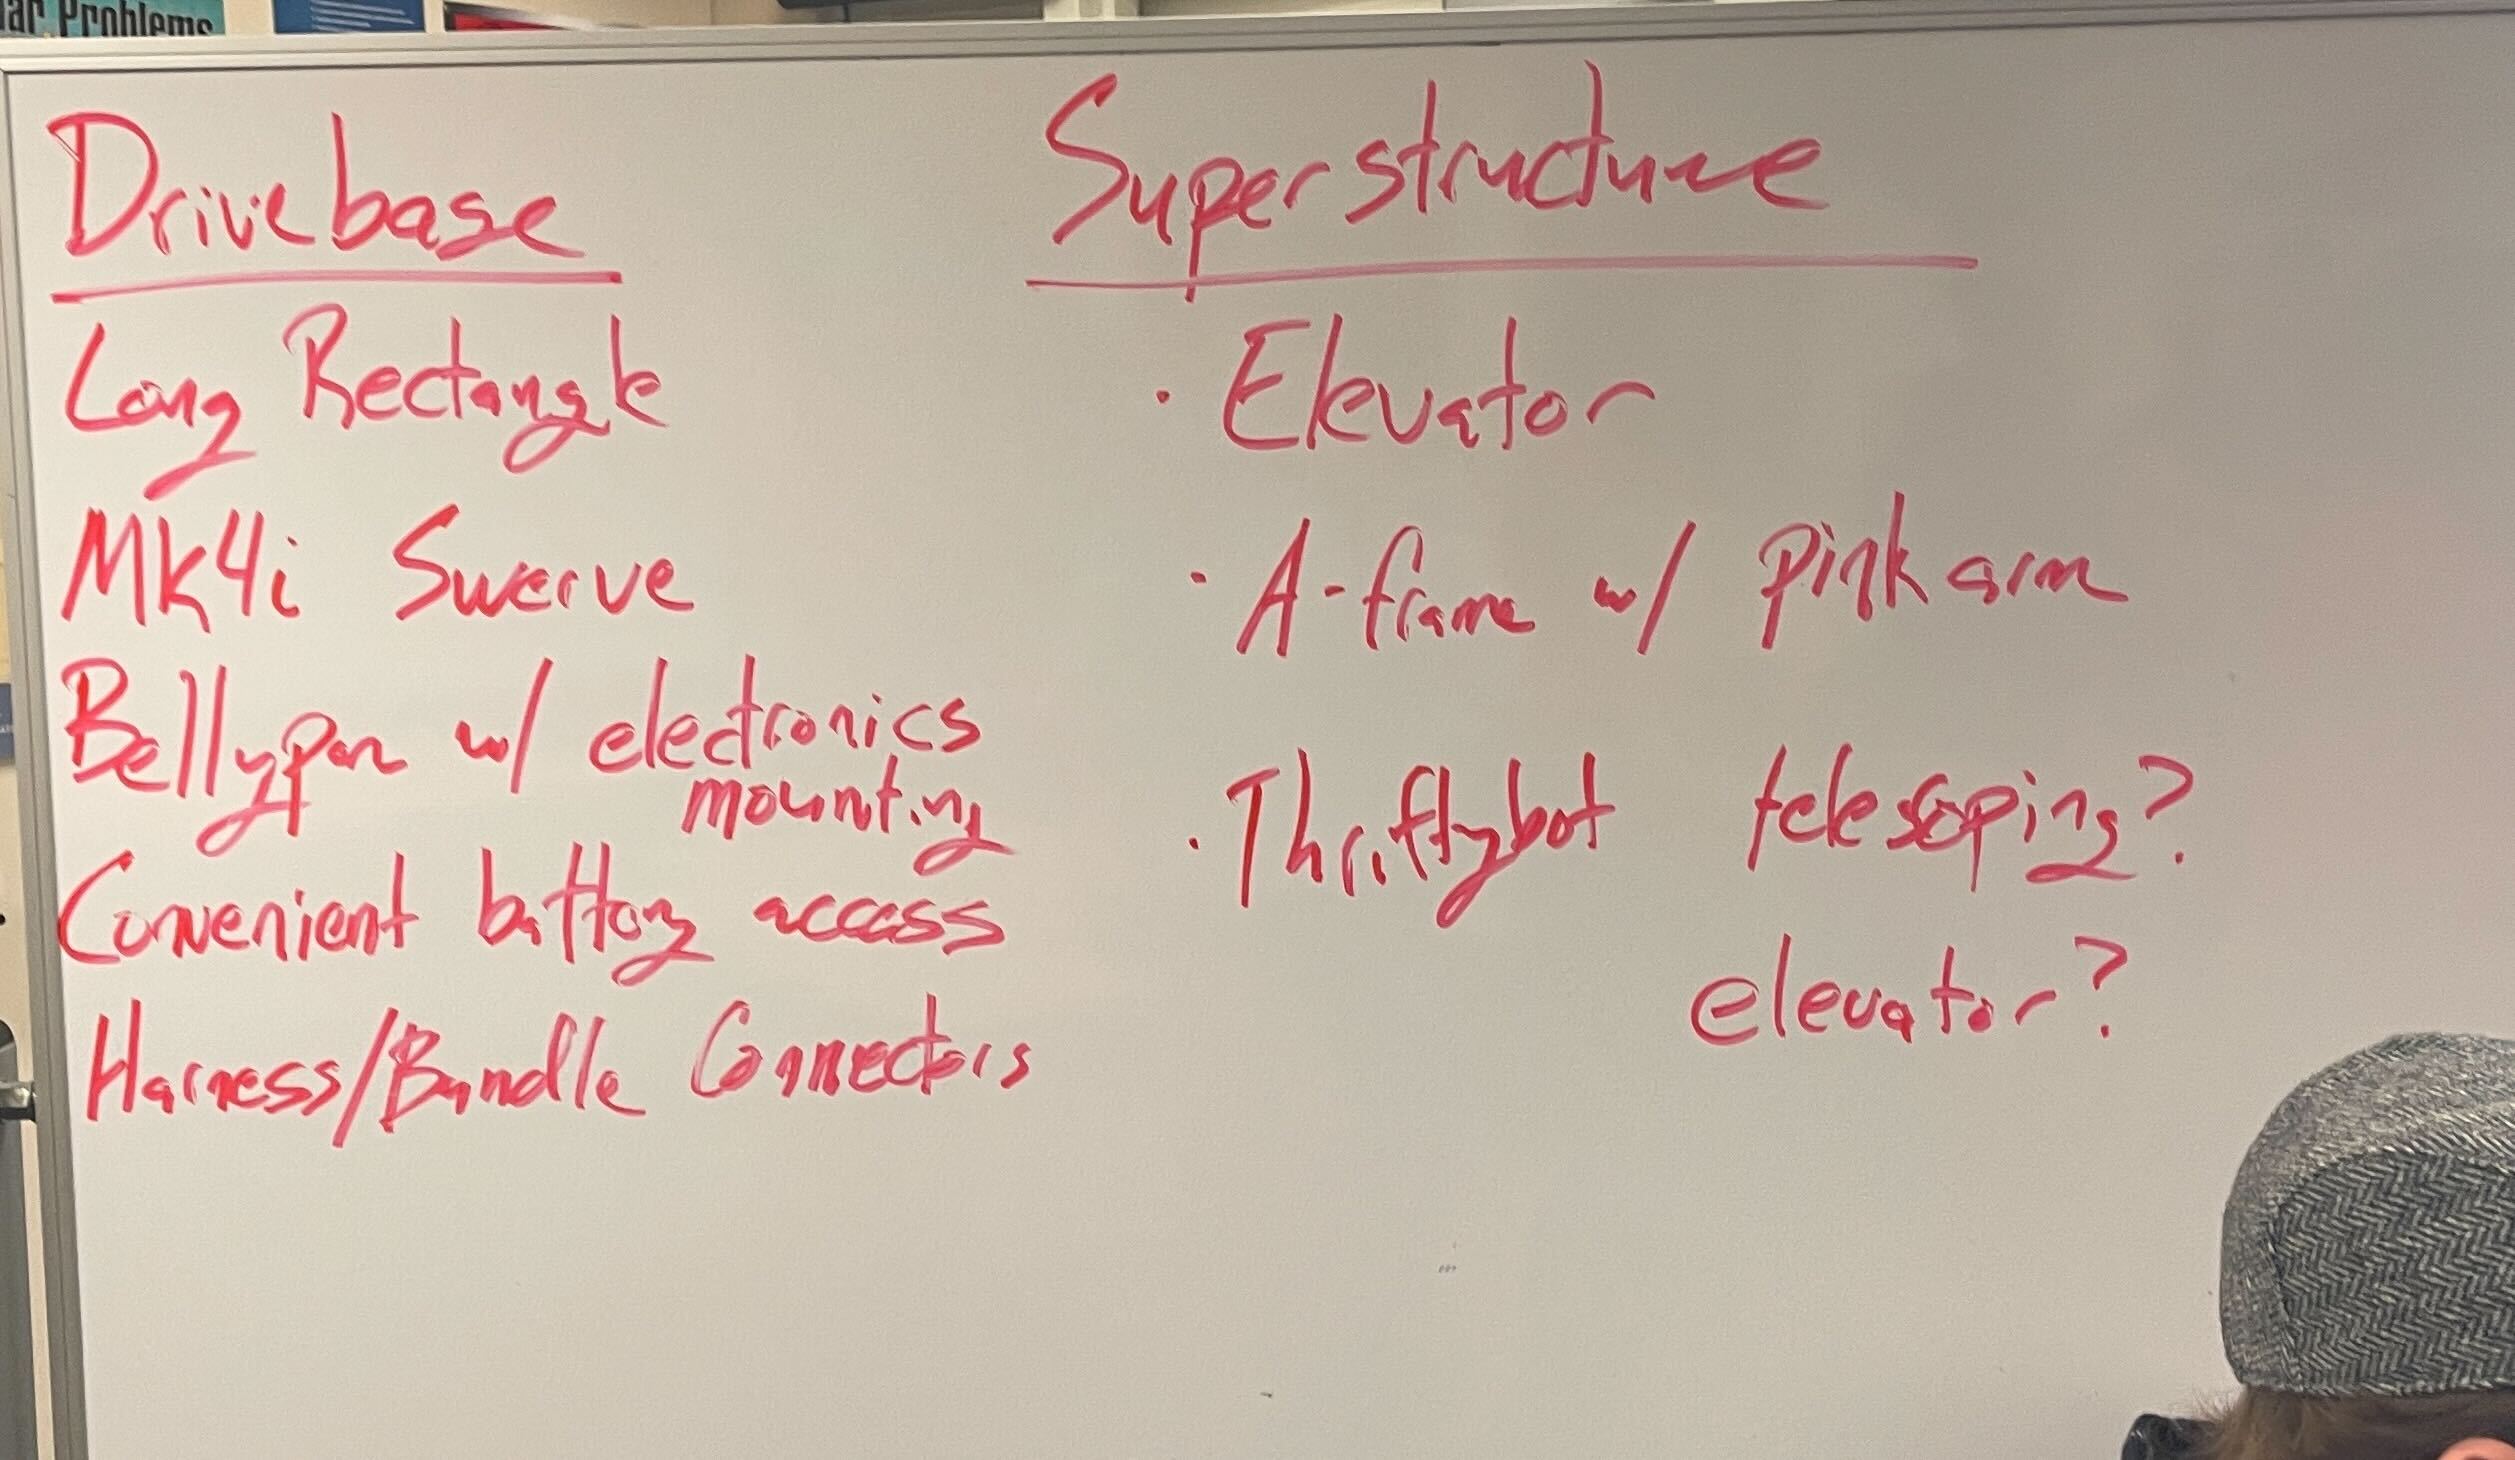 lar Problems
Drivebase
Long Rectangle
Mk4i Swerve
Bellypan w/ electronics
mounting
Convenient battery access
Harness/Bundle Connectors
Superstructure
· Elevator
· A-frame w/ pink arm
· Thriftybot telesoping?
elevator?